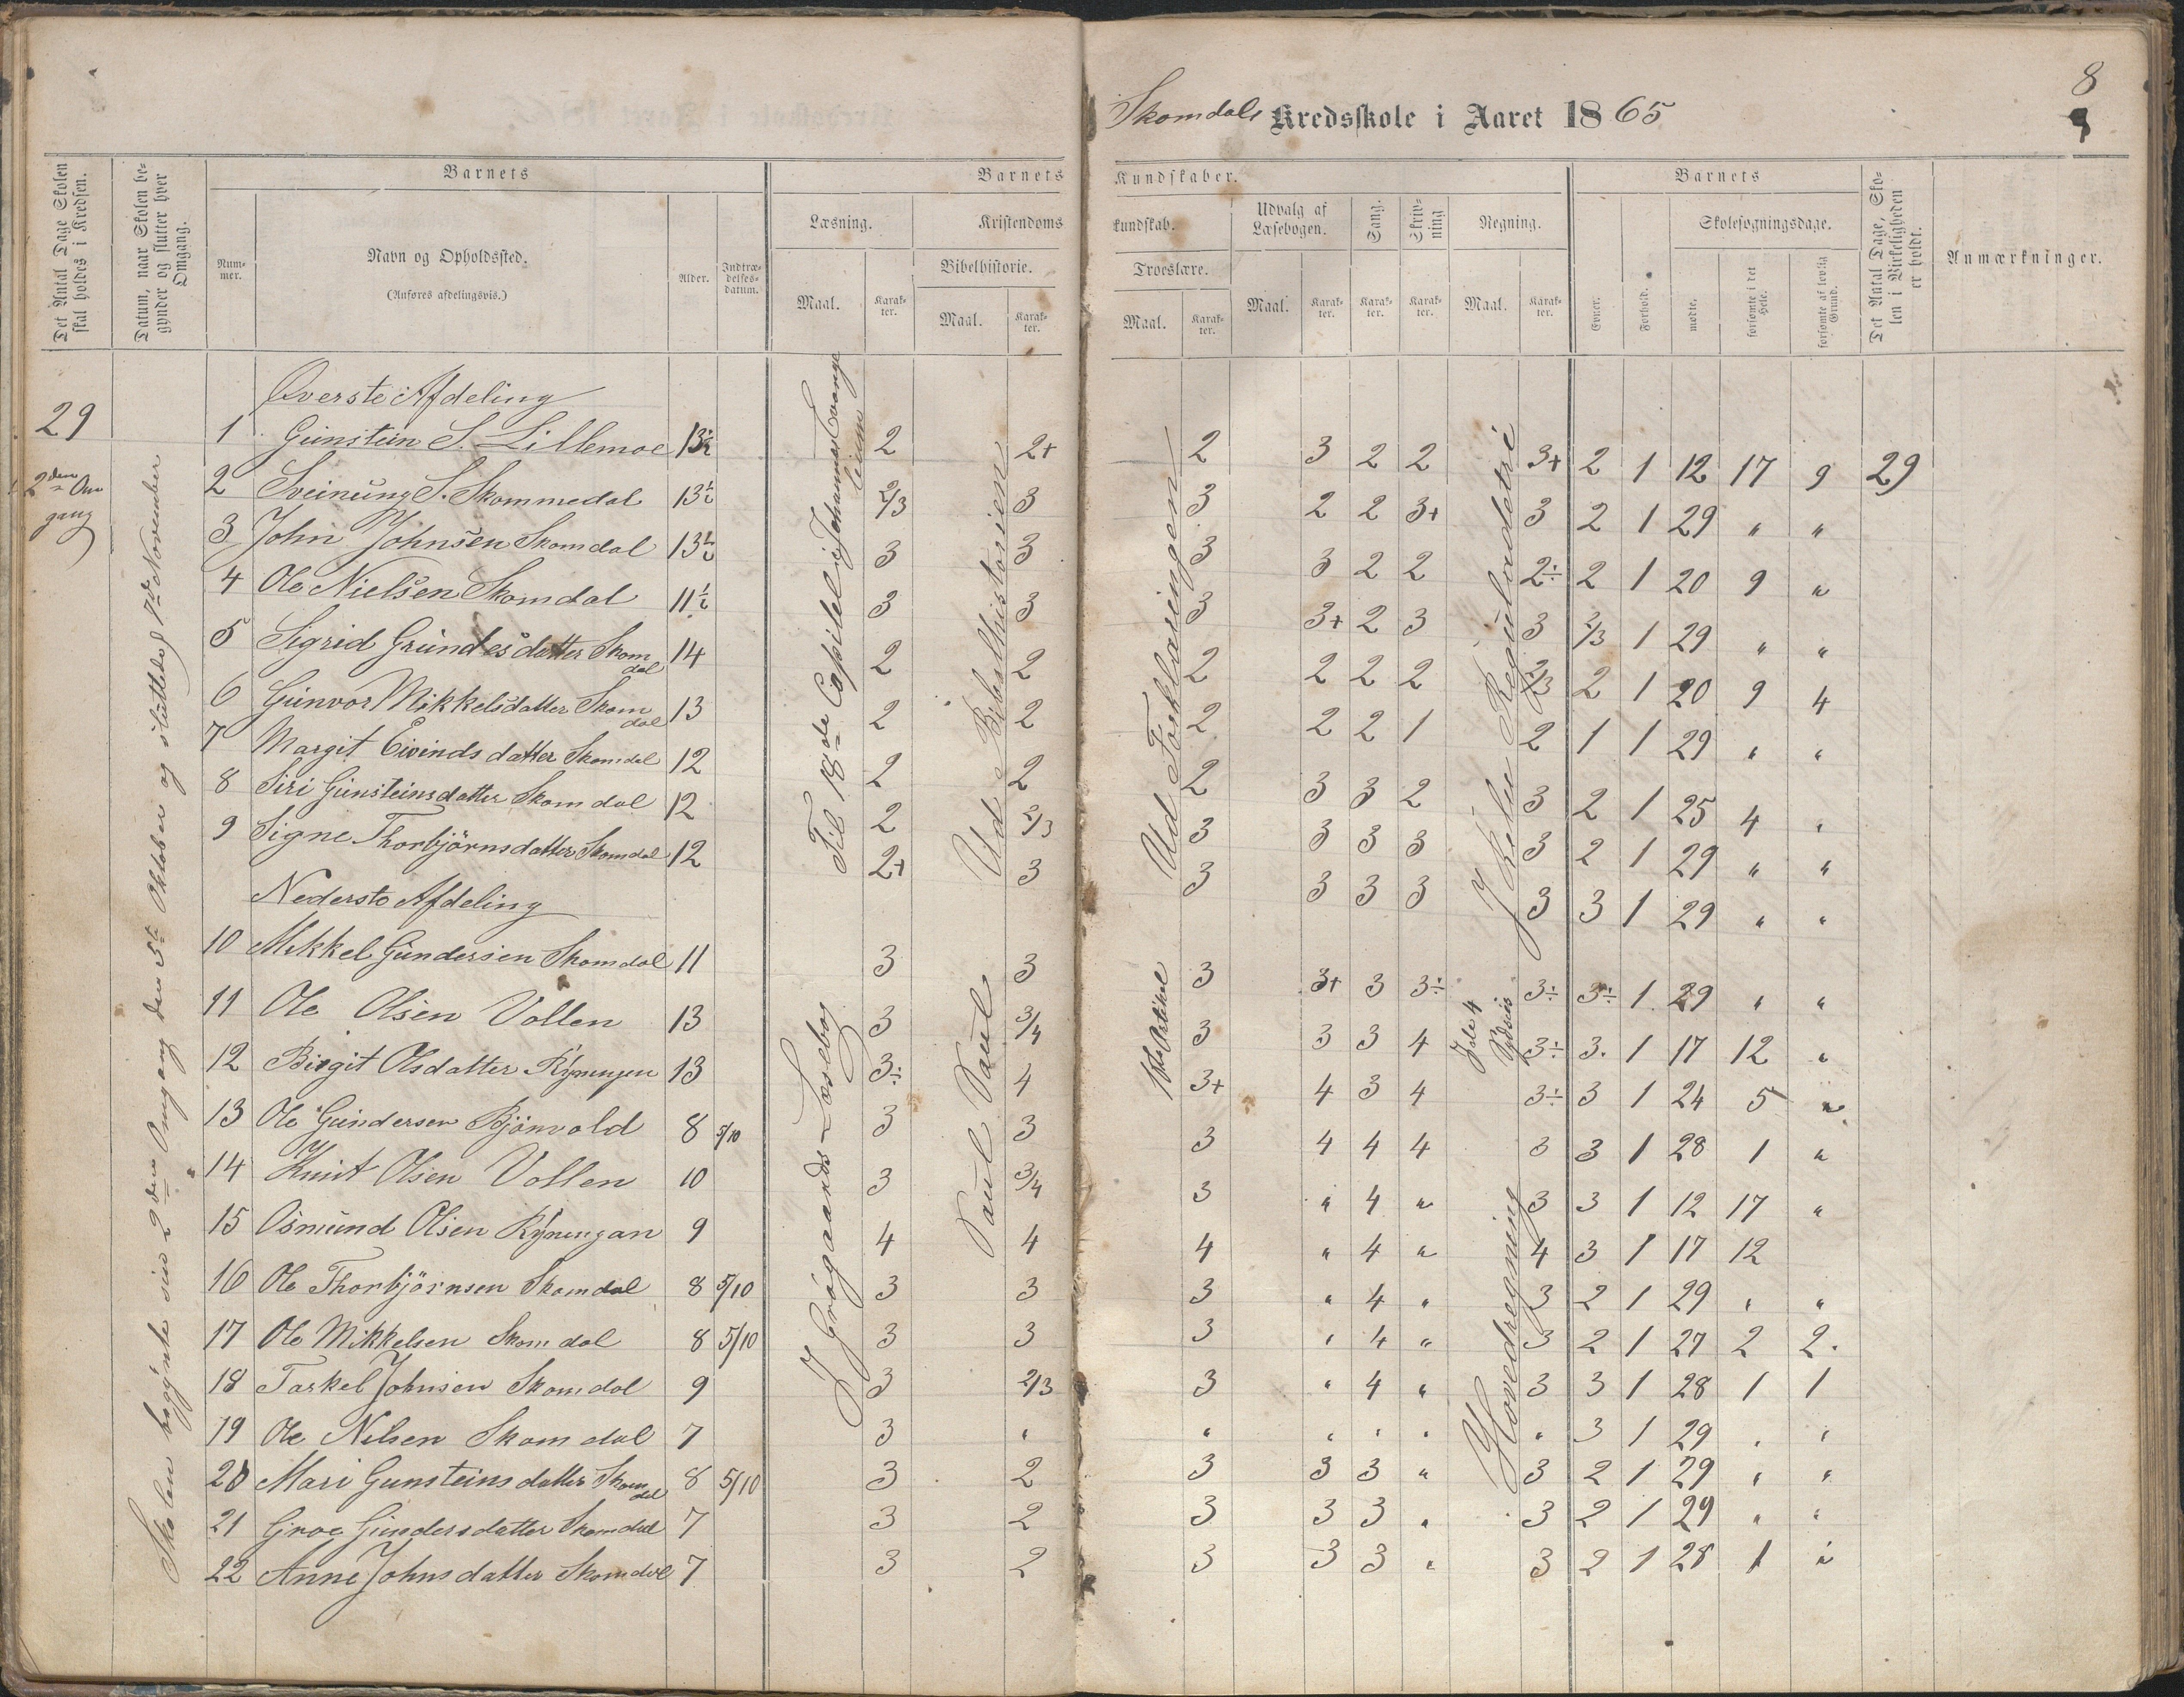 8
9
Skomdals Kredsskole i Aaret 1865
Det Antal Dage Skolen skal holdes i Kredsen.
Datum, naar Skolen begynder og slutter hver Omgang.
Barnets
Nummer.
Navn og Opholdssted.
(Anføres afdelingsvis.)
Alder.
Indtrædelses-datum.
Barnets Kundskaber.
Læsning.
Maal.
Karakter.
Kristendoms kundskab.
Bibelhistorie.
Maal.
Karakter.
Troeslære.
Maal.
Karakter.
Udvalg af Læsebogen.
Maal.
Karakter.
Sang.
Karakter.
Skrivning
Karakter.
Regning.
Maal.
Karakter.
Barnets
Evner.
Forhold.
Skolesøgningsdage.
mødte.
forsømte i det Hele.
forsømte af lovlig Grund.
Det Antal Dage, Skolen i Virkeligheden er holdt.
Anmærkninger.
29
2den Omgang
Skolen begynte sin 2den Omgang den 5te Oktober og sluttede 7de November
Til 18de Capitel i Johannes Evangelium
Ud Bibelhistorien
Ud Forklaringen
I hele Reguladetri
Øverste Afdeling
1 Gunstein S. Lillemoe 13½ 2 2+ 2 3 2 2 3+ 2 1 12 17 9 29
2 Sveinung S. Skommedal 13½ 2/3 3 3 2 2 3+ 3 2 1 29 " "
3 John Johnsen Skomdal 13½ 3 3 3 3 2 2 2÷ 2 1 20 9 "
4 Ole Nielsen Skomdal 11½ 3 3 3 3+ 2 3 3 2/3 1 29 " "
5 Sigrid Gundesdatter Skomdal 14 2 2 2 2 2 2 2/3 2 1 20 9 4
6 Gunvor Mikkelsdatter Skomdal 13 2 2 2 2 2 1 2 1 1 29 " "
7 Margit Eivindsdatter Skomdal 12 2 2 2 3 3 2 3 2 1 25 4 "
8 Siri Gunsteinsdatter Skomdal 12 2 2/3 3 3 3 3 3 2 1 29 " "
9 Signe Thorbjörnsdatter Skomdal 12 2+ 3 3 3 3 3 3 3 1 29 " "
Nederste Afdeling
I Grögaards Læsebog
Paul Paul
1ste Artikel
Hovedregning
10 Mikkel Gundersen Skomdal 11 3 3 3 3+ 3 3÷ 3÷ 3÷ 1 29 " "
11 Ole Olsen Vollen 13 3 3/4 3 3 3 4 3÷ 3. 1 17 12 "
12 Birgit Olsdatter Kyningen 13 3÷ 4 3+ 4 3 4 3÷ 3 1 24 5 "
13 Ole Gundersen Bjönvold 8 5/10 3 3 3 4 4 4 3 3 1 28 1 "
14 Knut Olsen Vollen 10 3 3/4 3 " 4 " 3 3 1 12 17 "
15 Osmund Olsen Kyningan 9 4 4 4 " 4 " 4 3 1 17 12
16 Ole Thorbjörnsen Skomdal 8 5/10 3 3 3 " 4 " 3 2 1 29 " "
17 Ole Mikkelsen Skomdal 8 5/10 3 3 3 " 4 " 3 2 1 27 2 2.
18 Tarkel Johnsen Skomdal 9 3 2/3 3 " 4 " 3 3 1 28 1 1
19 Ole Nilsen Skomdal 7 3 " " " " " " 3 1 29 " "
20 Mari Gunsteinsdatter Skomdal 8 5/10 3 2 3 3 3 " 3 2 1 29 " "
21 Groe Gundersdatter Skomdal 7 3 2 3 3 3 " 3 2 1 29 " "
22 Anne Johnsdatter Skomdal 7 3 2 3 3 3 " 3 2 1 28 1 "